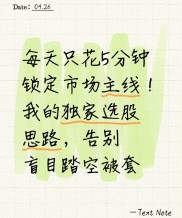 Date: 04.26
每天只花5分钟
锁定市场主线！
我的独家选股
思路，告别
盲目踏空被套
—Text Note